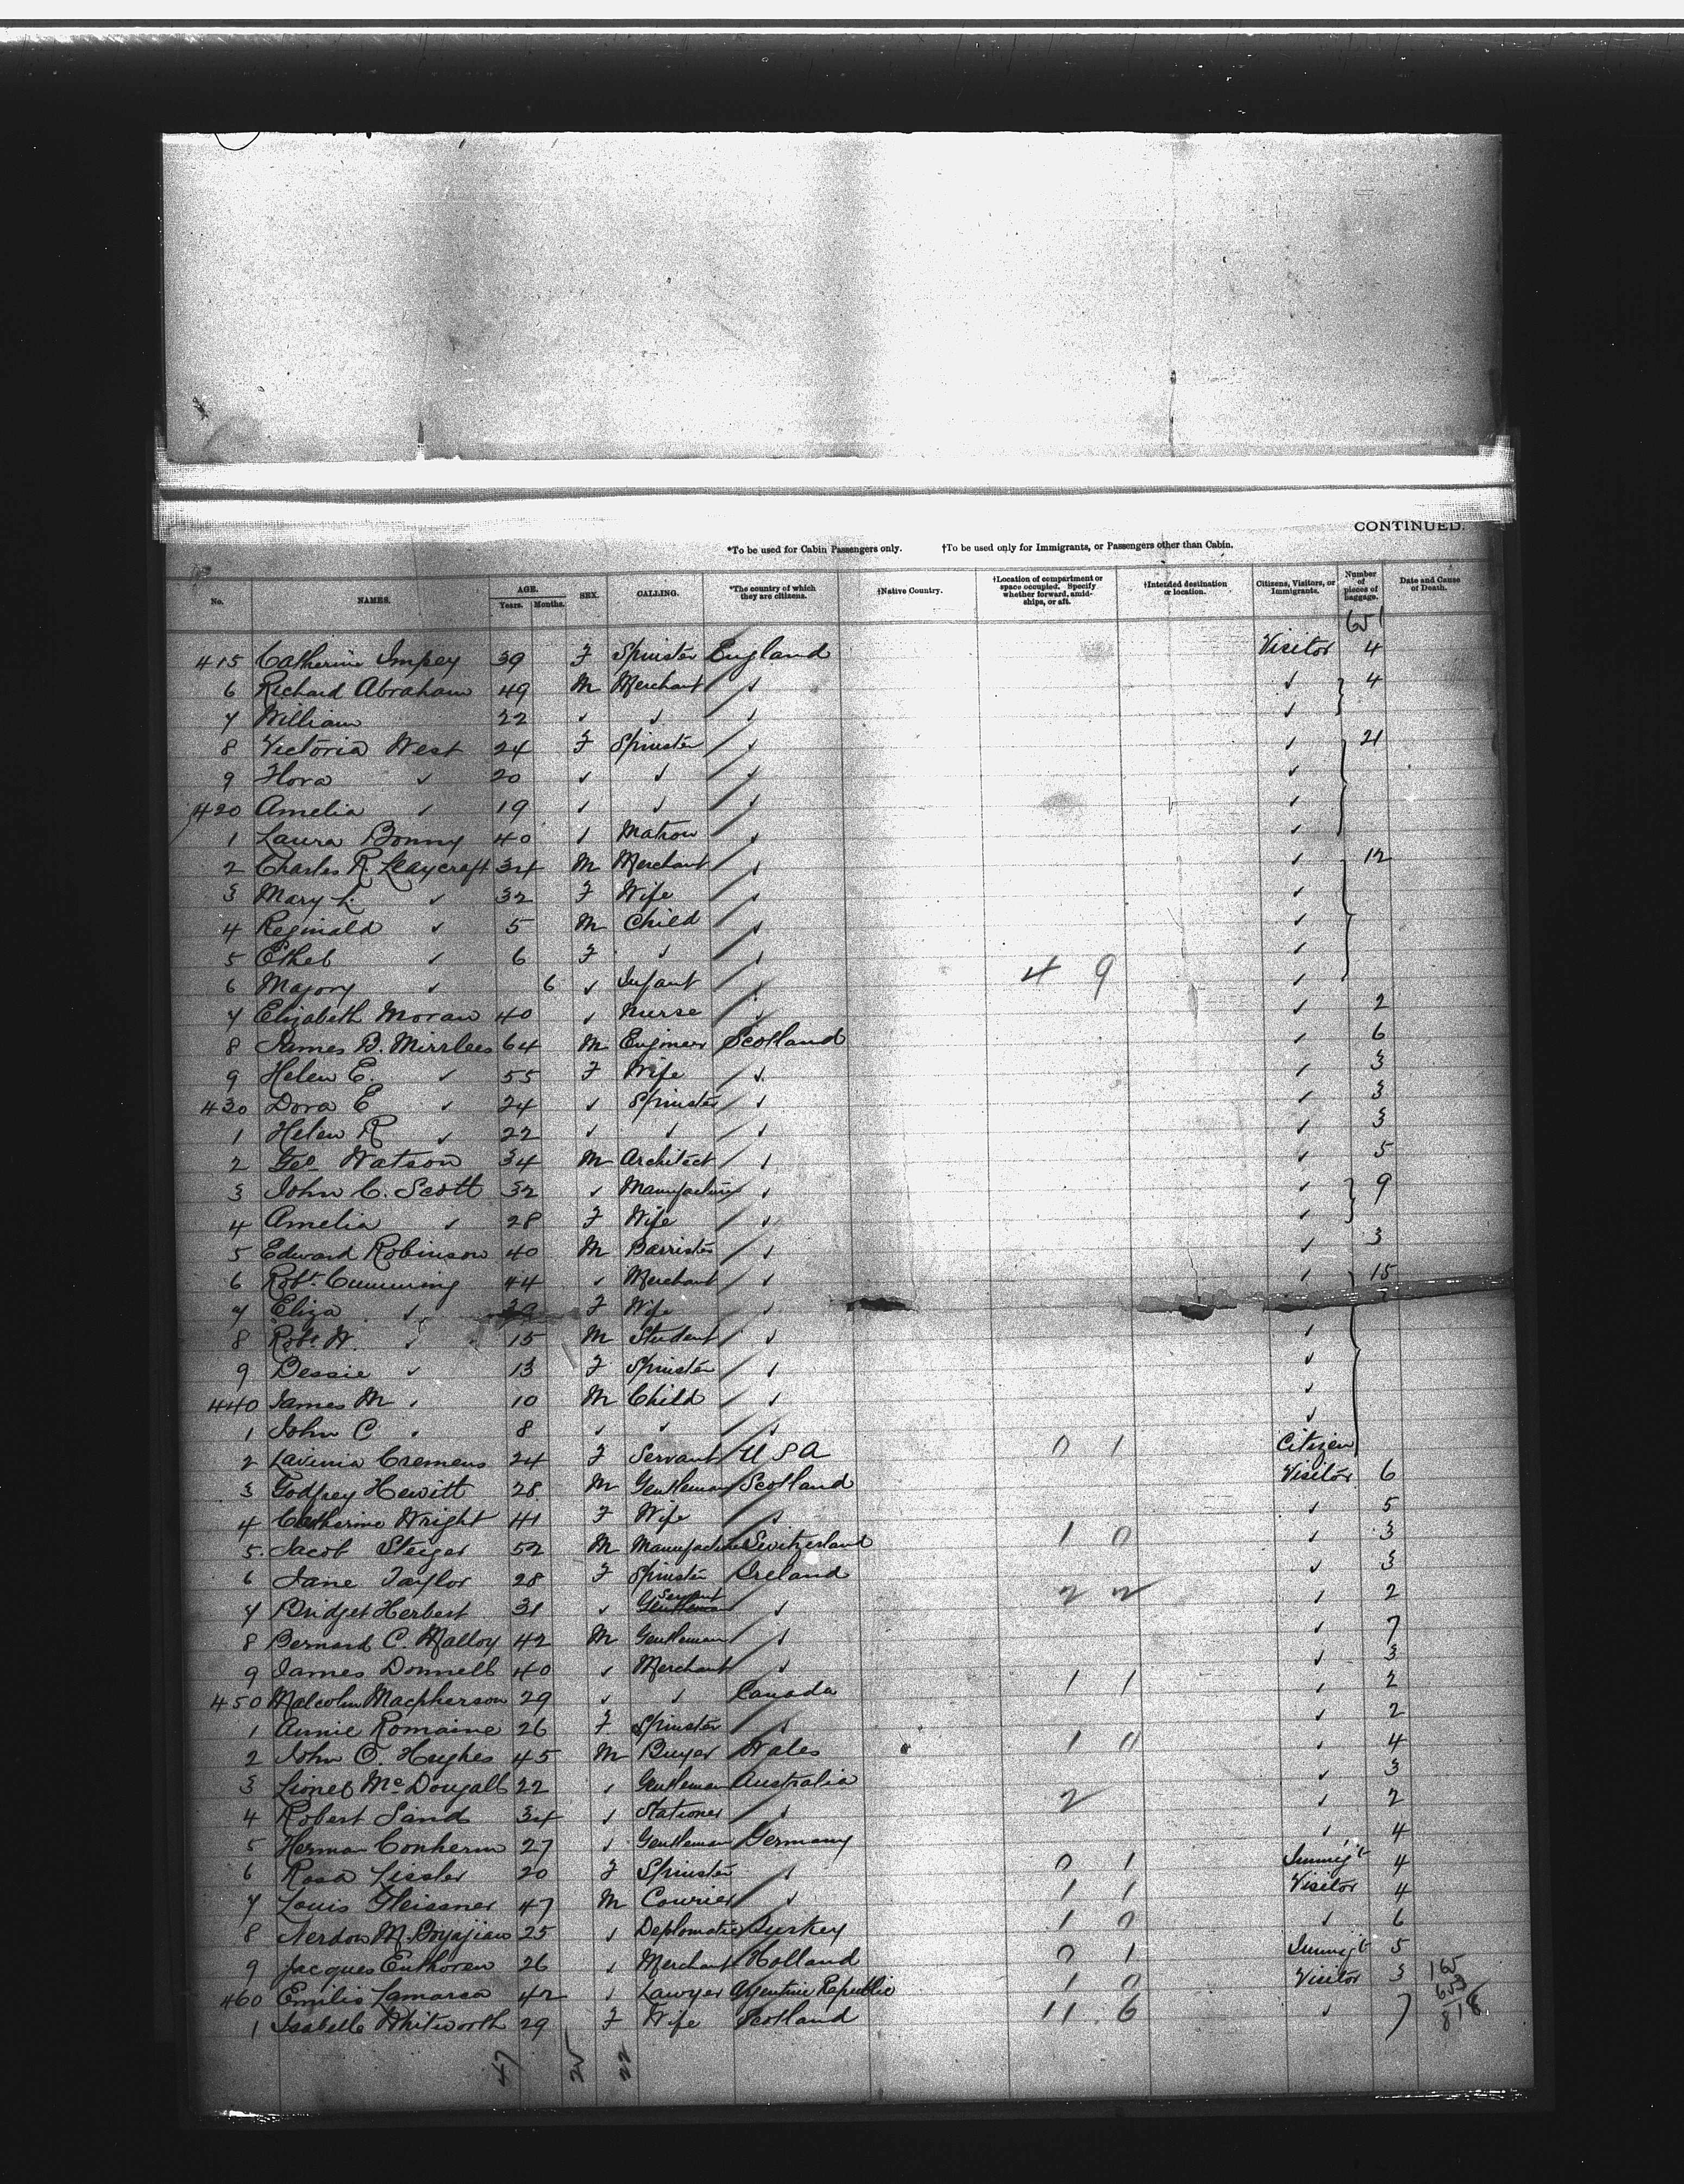 CONTINUED.
*To be used for Cabin Passengers only. †To be used only for Immigrants, or Passengers other than Cabin.
No. NAMES. AGE. Years. Months. SEX. CALLING. *The country of which they are citizens. †Native Country. †Location of compartment or space occupied. Specify whether forward, amidships, or aft. †Intended destination or location. Citizens, Visitors, or Immigrants. Number of pieces of baggage. Date and Cause of Death.
651
415 Catherine Impey 39 F Spinster England Visitor 4
6 Richard Abraham 49 M Merchant ✓ ✓ 4
7 William 22 ✓ ✓ ✓ ✓
8 Victoria West 24 F Spinster ✓ ✓ 21
9 Flora ✓ 20 ✓ ✓ ✓ ✓
420 Amelia ✓ 19 ✓ ✓ ✓ ✓
1 Laura Bonny 40 ✓ Matron ✓ ✓
2 Charles R. Leaycraft 34 M Merchant ✓ ✓ 12
3 Mary L. ✓ 32 F Wife ✓ ✓
4 Reginald ✓ 5 M Child ✓ ✓
5 Ethel ✓ 6 F ✓ ✓ ✓
6 Majory ✓ 6 ✓ Infant ✓ 4 9 ✓
7 Elizabeth Moran 40 ✓ Nurse ✓ ✓ 2
8 James B. Mirrlees 64 M Engineer Scotland ✓ 6
9 Helen E. ✓ 55 F Wife ✓ ✓ 3
430 Dora E ✓ 24 ✓ Spinster ✓ ✓ 3
1 Helen R ✓ 22 ✓ ✓ ✓ ✓ 3
2 Geo Watson 34 M Architect ✓ ✓ 5
3 John C. Scott 32 ✓ Manufacturer ✓ ✓ 9
4 Amelia ✓ 28 F Wife ✓ ✓
5 Edward Robinson 40 M Barrister ✓ ✓ 3
6 Robt. Cumming 44 ✓ Merchant ✓ ✓ 15
7 Eliza ✓ 39 F Wife ✓
8 Robt. W. ✓ 15 M Student ✓ ✓
9 Bessie ✓ 13 F Spinster ✓ ✓
440 James M ✓ 10 M Child ✓ ✓
1 John C ✓ 8 ✓ ✓ ✓ ✓
2 Lavinia Cremens 24 F Servant U S A 0 1 Citizen
3 Godfrey Hewitt 28 M Gentleman Scotland Visitor 6
4 Catherine Wright 41 F Wife ✓ ✓ 5
5 Jacob Steiger 52 M Manufacturer Switzerland 1 0 ✓ 3
6 Jane Taylor 28 F Spinster Ireland ✓ 3
7 Bridget Herbert 31 ✓ Gentleman Servant ✓ 2 2 ✓ 2
8 Bernard C. Malloy 42 M Gentleman ✓ ✓ 7
9 James Donnell 40 ✓ Merchant ✓ ✓ 3
450 Malcolm Macpherson 29 ✓ ✓ Canada 1 1 ✓ 2
1 Annie Romaine 26 F Spinster ✓ ✓ 2
2 John O. Hughes 45 M Buyer Wales 1 0 ✓ 4
3 Lionel McDougall 22 ✓ Gentleman Australia ✓ 3
4 Robert Sand 34 ✓ Stationer ✓ 2 ✓ 2
5 Herman Conherm 27 ✓ Gentleman Germany ✓ 4
6 Rosa Lissler 20 F Spinster ✓ 0 1 Immigt 4
7 Louis Gleissner 47 M Courier ✓ 1 1 Visitor 4
8 M. Boyajian 25 ✓ Deplomatic Turkey 1 0 ✓ 6
9 Jacques Enthoven 26 ✓ Merchant Holland 0 1 Immigt 5
460 Emilio Lamarca 42 ✓ Lawyer Argentine Republic 1 0 Visitor 3
1 Isabella Whitworth 29 F Wife Scotland 11 6 ✓ 7
165
653
818
47 25 22